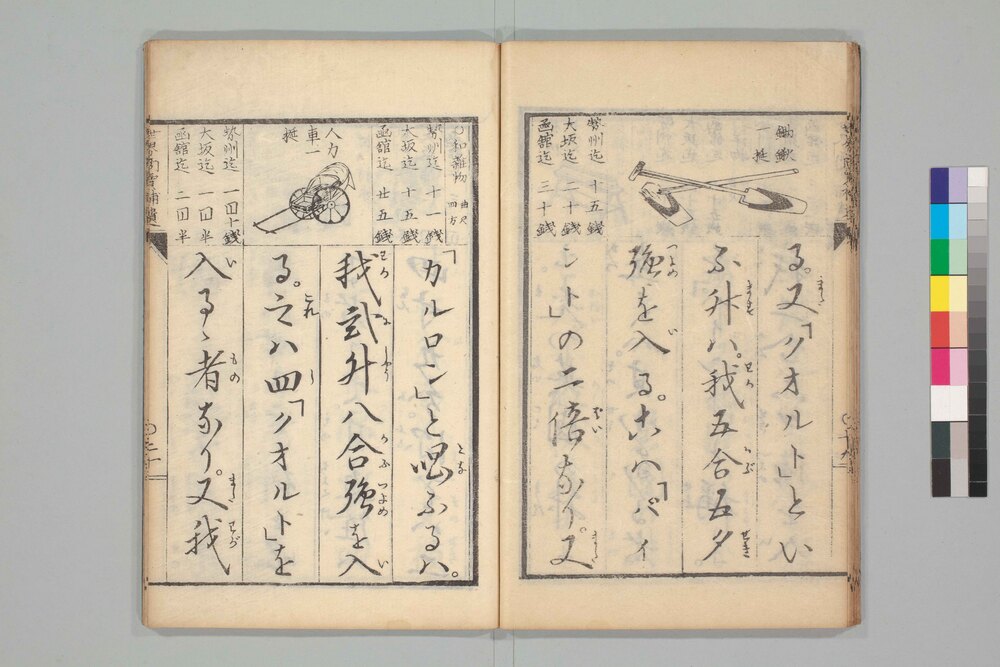 鋤鍬
一挺
勢州迄 十五銭
大坂迄 二十銭
函館迄 三十銭
る。又「クオルト」とい
ふ升ハ。我五合五夕
強を入る。こハ「パイ
ント」の二倍なり。又
○和雑物 曲尺四方
勢州迄 十一銭
大坂迄 十五銭
函館迄 廿五銭
人力
車一
挺
勢州迄
大坂迄 一円半
函館迄 二円半
「カルロン」と唱ふるハ。
我弐升八合強を入
る。之ハ四「クオルト」を
入るゝ者なり。又我